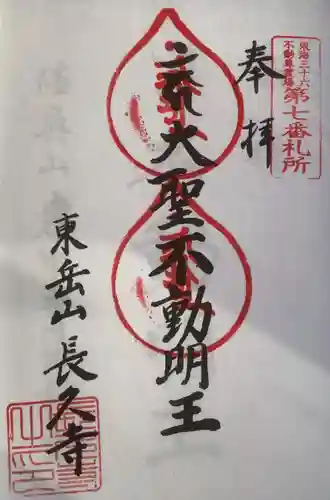 奉拝
東海三十六
不動尊霊場
第七番札所
大聖不動明王
東岳山長久寺